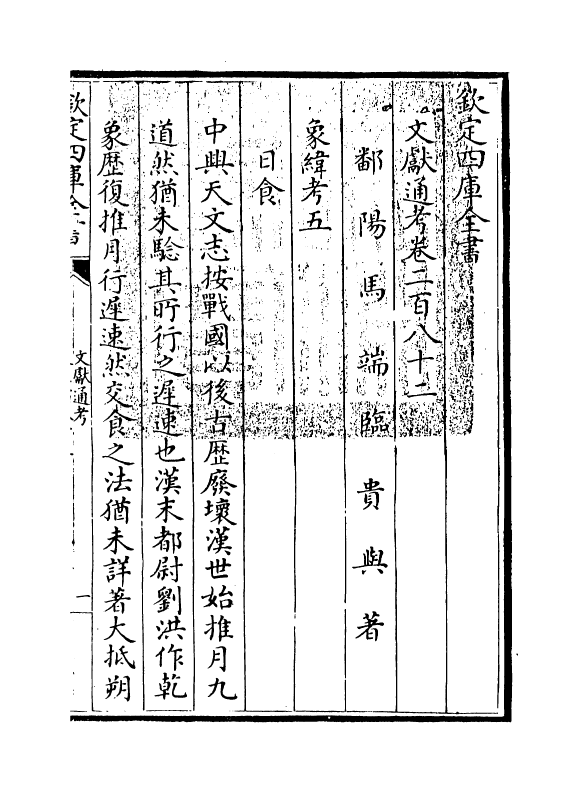 欽定四庫全書
文獻通考卷二百八十二
鄱陽馬端臨貴與著
象緯考五
日食
中興天文志按戰國以後古歴廢壞漢世始推月九
道然猶未騐其所行之遲速也漢末都尉劉洪作乾
象歴復推月行遲速然交食之法猶未詳著大抵朔
欽定四庫全書
文獻通考
一